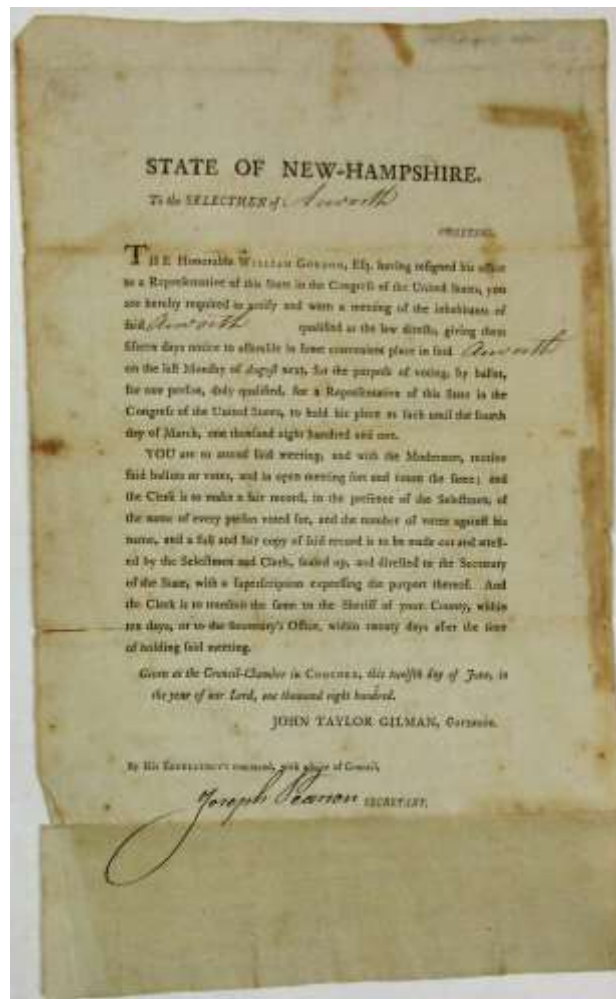 STATE OF NEW-HAMPSHIRE.
To the SELECTMEN of Acworth
GREETING.
THE Honorable WILLIAM GORDON, Esq. having resigned his office
as a Representative of this State in the Congress of the United States, you
are hereby required to notify and warn a meeting of the inhabitants of
said Acworth qualified as the law directs, giving them
fifteen days notice to assemble in some convenient place in said Acworth
on the last Monday of August next, for the purpose of voting, by ballot,
for one person, duly qualified, for a Representative of this State in the
Congress of the United States, to hold his place as such until the fourth
day of March, one thousand eight hundred and one.
YOU are to attend said meeting, and with the Moderator, receive
said ballots or votes, and in open meeting sort and count the same; and
the Clerk is to make a fair record, in the presence of the Selectmen, of
the name of every person voted for, and the number of votes against his
name, and a full and fair copy of said record is to be made out and attest-
ed by the Selectmen and Clerk, sealed up, and directed to the Secretary
of the State, with a superscription expressing the purport thereof. And
the Clerk is to transmit the same to the Sheriff of your County, within
ten days, or to the Secretary's Office, within twenty days after the time
of holding said meeting.
Given at the Council-Chamber in CONCORD, this twelfth day of June, in
the year of our Lord, one thousand eight hundred.
JOHN TAYLOR GILMAN, Governor.
By His EXCELLENCY'S command, with advice of Council,
Joseph Pearson SECRETARY.